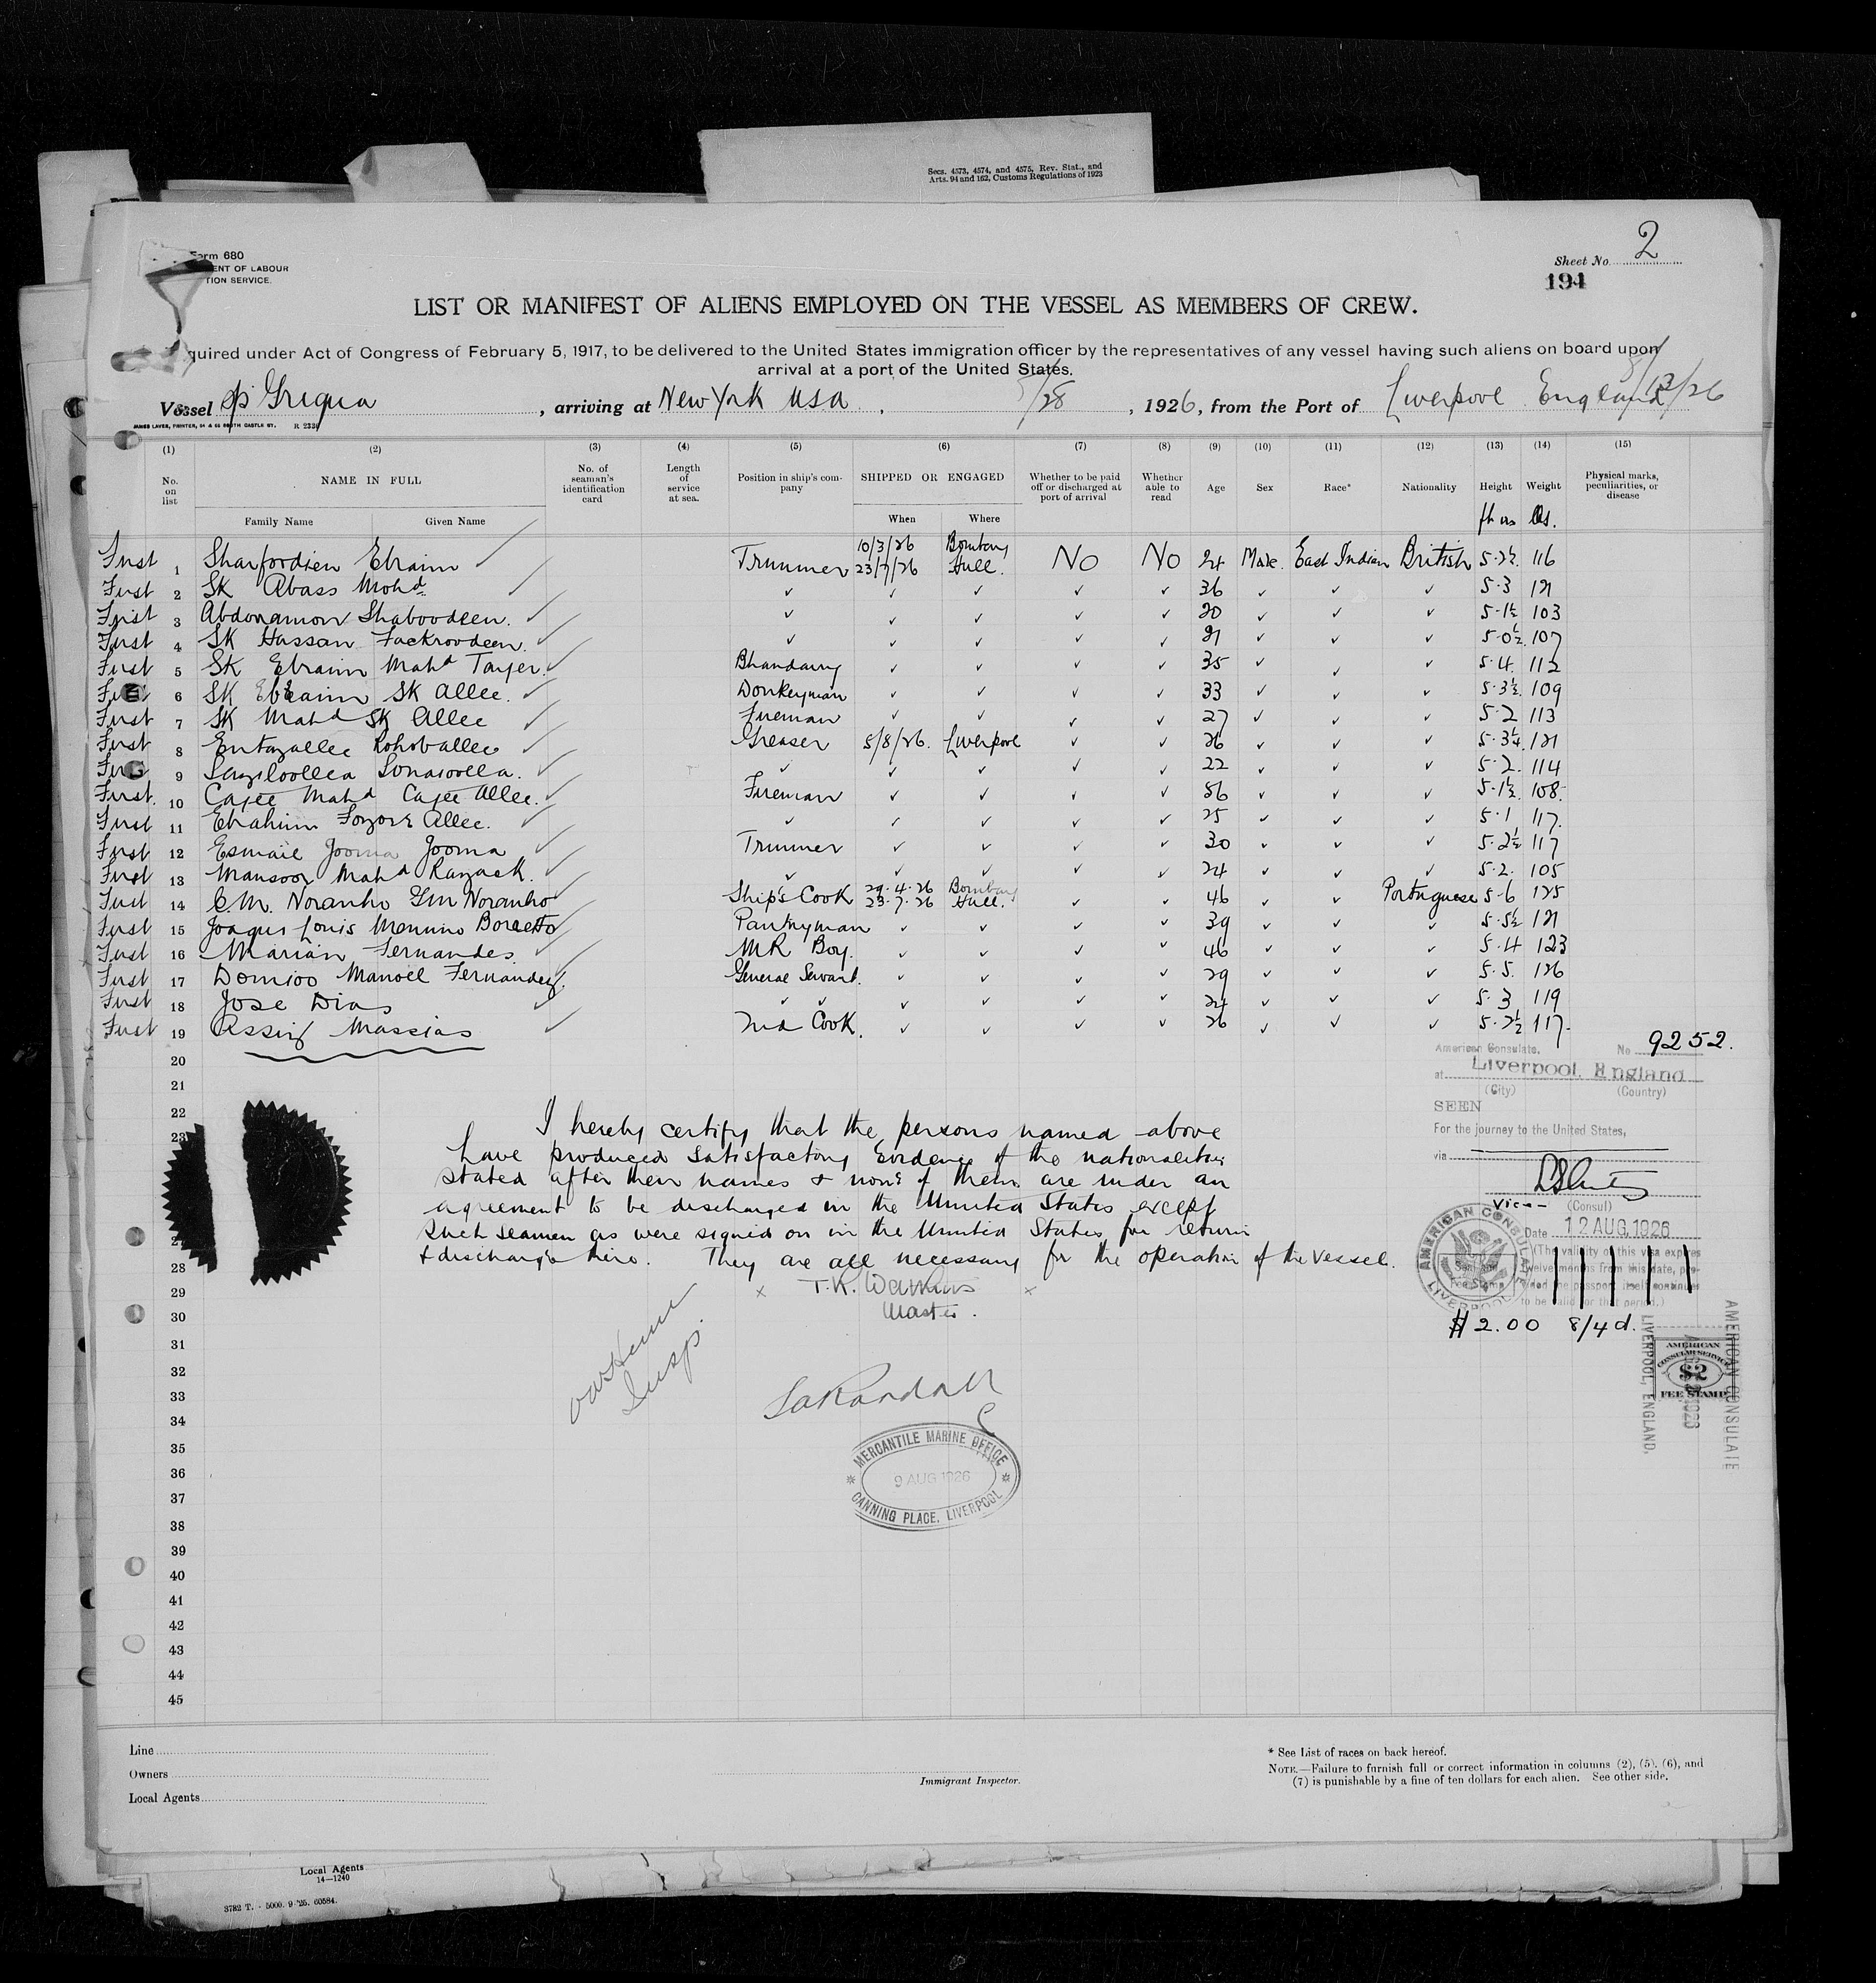 Secs. 4573, 4574, and 4575, Rev. Stat., and
Arts. 94 and 162, Customs Regulations of 1923
Form 680
ENT OF LABOUR
TION SERVICE.
Sheet No. 2
194
LIST OR MANIFEST OF ALIENS EMPLOYED ON THE VESSEL AS MEMBERS OF CREW.
quired under Act of Congress of February 5, 1917, to be delivered to the United States immigration officer by the representatives of any vessel having such aliens on board upon
arrival at a port of the United States.
Vessel Griqua, arriving at New York USA, 8/28, 1926, from the Port of Liverpool England 8/13/26
JAMES LAVER, PRINTER, CASTLE ST. R 2330
(1) (2) (3) (4) (5) (6) (7) (8) (9) (10) (11) (12) (13) (14) (15)
No. on list NAME IN FULL No. of seaman's identification card Length of service at sea. Position in ship's company SHIPPED OR ENGAGED Whether to be paid off or discharged at port of arrival Whether able to read Age Sex Race* Nationality Height Weight Physical marks, peculiarities, or disease
Family Name Given Name When Where ft ins lbs.
First 1 Sharfordien Ebraim Trimmer 10/3/26 Bombay 23/7/26 Hull. No No 24 Male East Indian British 5·2½ 116
First 2 SK Abass Mohd ✓ ✓ ✓ ✓ ✓ 36 ✓ ✓ ✓ 5·3 121
First 3 Abdonamon Shaboodeen. ✓ ✓ ✓ ✓ ✓ 20 ✓ ✓ ✓ 5·1½ 103
First 4 SK Hassan Fackroodeen. ✓ ✓ ✓ ✓ ✓ 21 ✓ ✓ ✓ 5·0½ 107
First 5 SK Ebraim Mahd Tayer. Bhandarry ✓ ✓ ✓ ✓ 35 ✓ ✓ ✓ 5·4 112
First 6 SK Ebraim SK Allee. Donkeyman ✓ ✓ ✓ ✓ 33 ✓ ✓ ✓ 5·3½ 109
First 7 SK Mahd SK Allee Fireman ✓ ✓ ✓ ✓ 27 ✓ ✓ ✓ 5·2 113
First 8 Entazallee Rohoballee Greaser 5/8/26. Liverpool ✓ ✓ 26 ✓ ✓ ✓ 5·3¼ 121
First 9 Sonaroolla. ✓ ✓ ✓ ✓ ✓ 22 ✓ ✓ ✓ 5·2. 114
First. 10 Cajee Mahd Cajee Allee. Fireman ✓ ✓ ✓ ✓ 56 ✓ ✓ ✓ 5·1½ 108.
First 11 Ebrahim Allee. ✓ ✓ ✓ ✓ ✓ 25 ✓ ✓ ✓ 5·1 117.
First 12 Esmail Jooma Jooma Trimmer ✓ ✓ ✓ ✓ 30 ✓ ✓ ✓ 5·2½ 117
First 13 Mansoor Mahd Razack. ✓ ✓ ✓ ✓ ✓ 24 ✓ ✓ ✓ 5·2. 105
First 14 C.M. Noranho Noranho Ship's Cook 29·4·26 Bombay 23·7·26 Hull. ✓ ✓ 46 ✓ ✓ Portuguese 5·6 125
First 15 Joaqus Louis Mennino Boretto Pantryman ✓ ✓ ✓ ✓ 39 ✓ ✓ ✓ 5·5½ 121
First 16 Marian Fernandes. MR Boy. ✓ ✓ ✓ ✓ 46 ✓ ✓ ✓ 5·4 123
First 17 Domioo Manoel Fernandez. General Servant. ✓ ✓ ✓ ✓ 29 ✓ ✓ ✓ 5·5. 126
First 18 Jose Dias ✓ ✓ ✓ ✓ ✓ ✓ 24 ✓ ✓ ✓ 5·3 119
First 19 Assis Massias 2nd Cook. ✓ ✓ ✓ ✓ 26 ✓ ✓ ✓ 5·2½ 117.
20
21
22
23
27
28
29
30
31
32
33
34
35
36
37
38
39
40
41
42
43
44
45
I hereby certify that the persons named above
have produced satisfactory Evidence of the nationalities
stated after their names & none of them are under an
agreement to be discharged in the United States except
such seamen as were signed on in the United States for return
& discharge here. They are all necessary for the operation of the vessel.
x T.R. Watkins x
Master.
Insp.
MERCANTILE MARINE OFFICE
9 AUG 1926
CANNING PLACE, LIVERPOOL
American Consulate. No 9252.
at Liverpool, England
(City) (Country)
SEEN
For the journey to the United States,
via
Vice- (Consul)
Date 12 AUG. 1926
(The validity of this visa expires
twelve months from this date, pro-
vided the passport itself continues
to be valid for that period.)
AMERICAN CONSULATE
LIVERPOOL
$2.00 8/4d.
AMERICAN
CONSULAR SERVICE
$2
FEE STAMP
AMERICAN CONSULATE
LIVERPOOL, ENGLAND.
Line
Owners
Local Agents
Immigrant Inspector.
* See List of races on back hereof.
NOTE.—Failure to furnish full or correct information in columns (2), (5), (6), and
(7) is punishable by a fine of ten dollars for each alien. See other side.
Local Agents
14—1240
3782 T. · 5000. 9·'25. 60584.